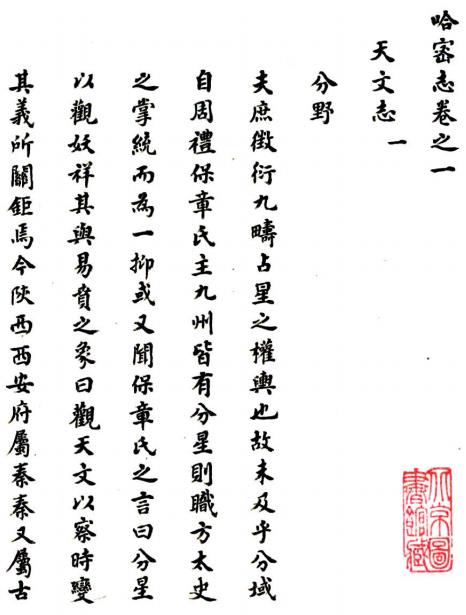 哈密志卷之一
天文志一
分野
夫庶徵衍九疇占星之權輿也故未及乎分域
自周禮保章氏主九州皆有分星則職方太史
之掌統而為一抑或又聞保章氏之言曰分星
以觀妖祥其與易賁之象曰觀天文以察時變
其義所關鉅焉今陝西西安府屬秦秦又屬古
北京圖
書館藏